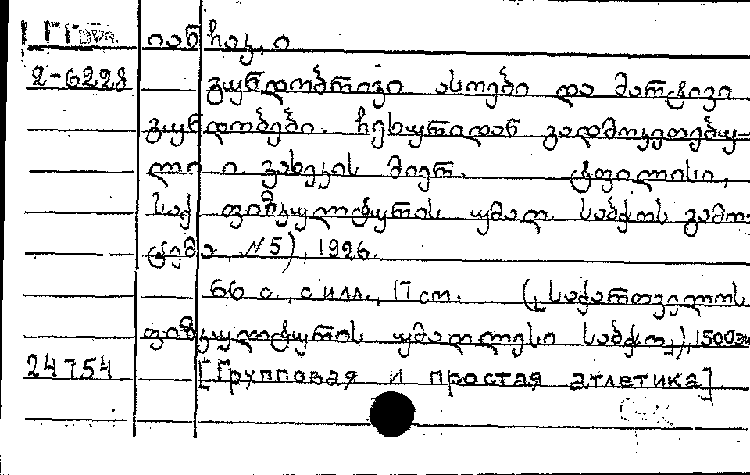 იანჩაკ, ი
2-6228 გუნდობრივი ასოები და მარტივი
გუნდობები. ჩეხურიდან გადმოკეთებუ-
ლი ი გახეკის მიერ. ტფილისი,
საქ ფიზკულტურის უმაღ. საბჭოს გამო-
ცემა, N5), 1926.
66 с., с илл., 17 см. („საქართველოს
ფიზკულტურის უმაღლესი საბჭო„), 1500
24754 [Групповая и простая атлетика]